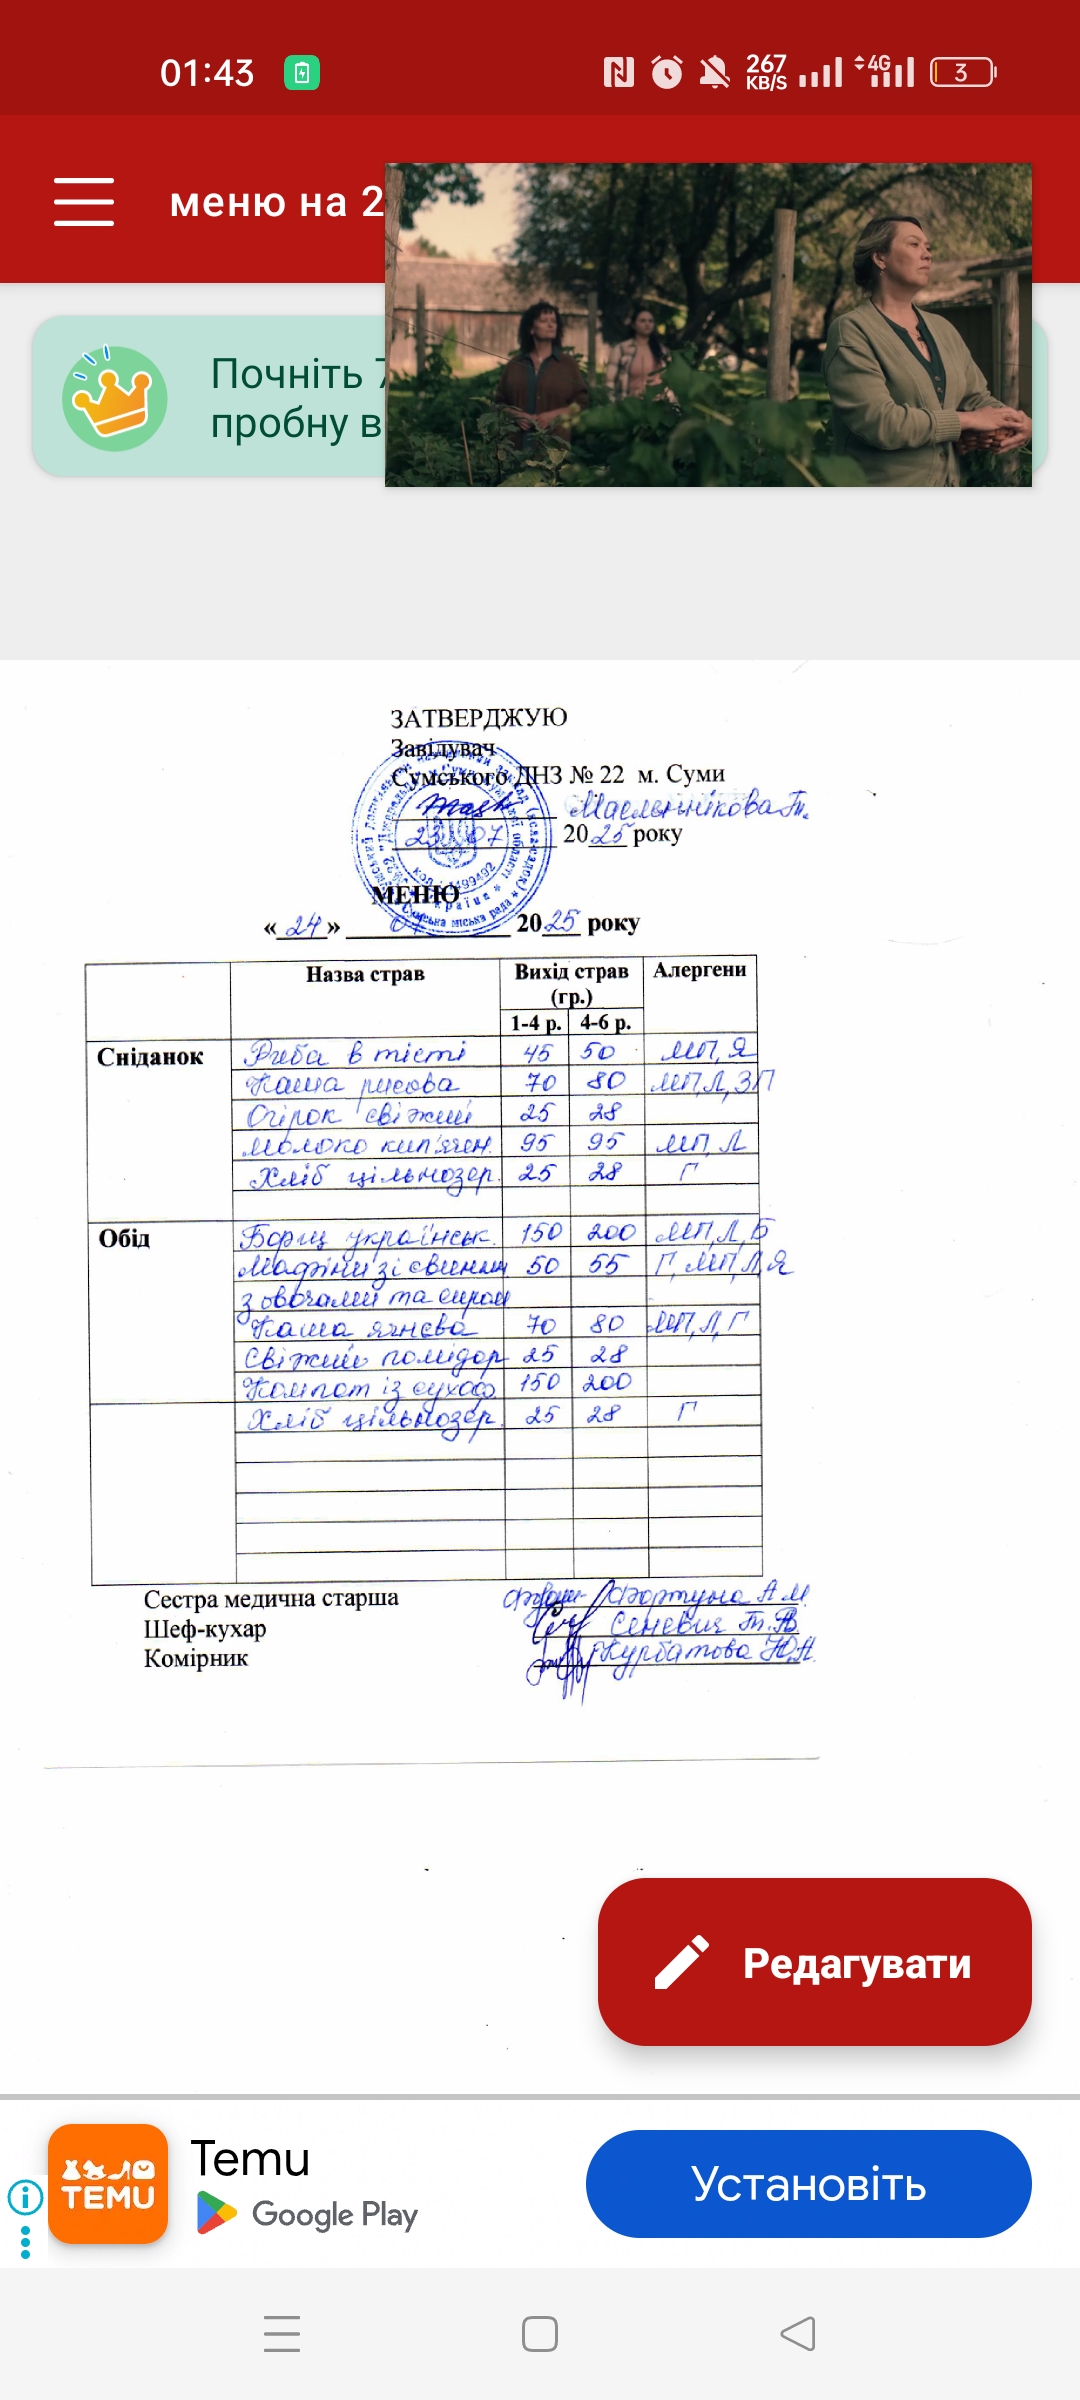 01:43
267 KB/S 4G 3
меню на 2
Почніть 7
пробну в
ЗАТВЕРДЖУЮ
Завідувач
Сумського ДНЗ № 22 м. Суми
Масельнікова Т.
23 07 2025 року
МЕНЮ
« 24 » 07 2025 року
Назва страв Вихід страв (гр.) Алергени
1-4 р. 4-6 р.
Сніданок Риба в тісті 45 50 МП, Я
Каша рисова 70 80 МП, Л, ЗП
Огірок свіжий 25 28
Молоко кип'ячен. 95 95 МП, Л
Хліб цільнозер. 25 28 Г
Обід Борщ українськ. 150 200 МП, Л, Б
Мафіни зі свинини 50 55 Г, МП, Л, Я
з овочами та сиром
Каша ячнева 70 80 МП, Л, Г
Свіжий помідор 25 28
Компот із сухоф. 150 200
Хліб цільнозер. 25 28 Г
Сестра медична старша Фортуна А.М.
Шеф-кухар Сеневич Т.В.
Комірник Курбатова Ю.Н.
Редагувати
TEMU
Temu
Google Play
Установіть